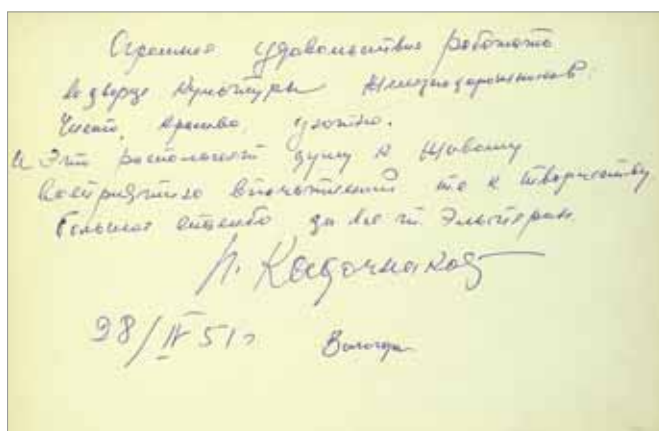 Огромное удовольствие работать
во дворце Культуры Железнодорожников.
Чисто, красиво, уютно.
и Это располагает душу к
восприятию впечатлений к творчеству
Большое спасибо за все
П. Кадочников
28/IV 51 г
Вологда